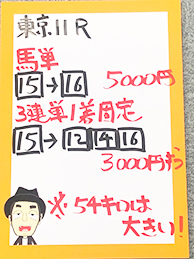 東京11R
馬単
15→16 5000円
3連単1着固定
15→12 14 16
3000円ずつ
※54キロは
大きい!